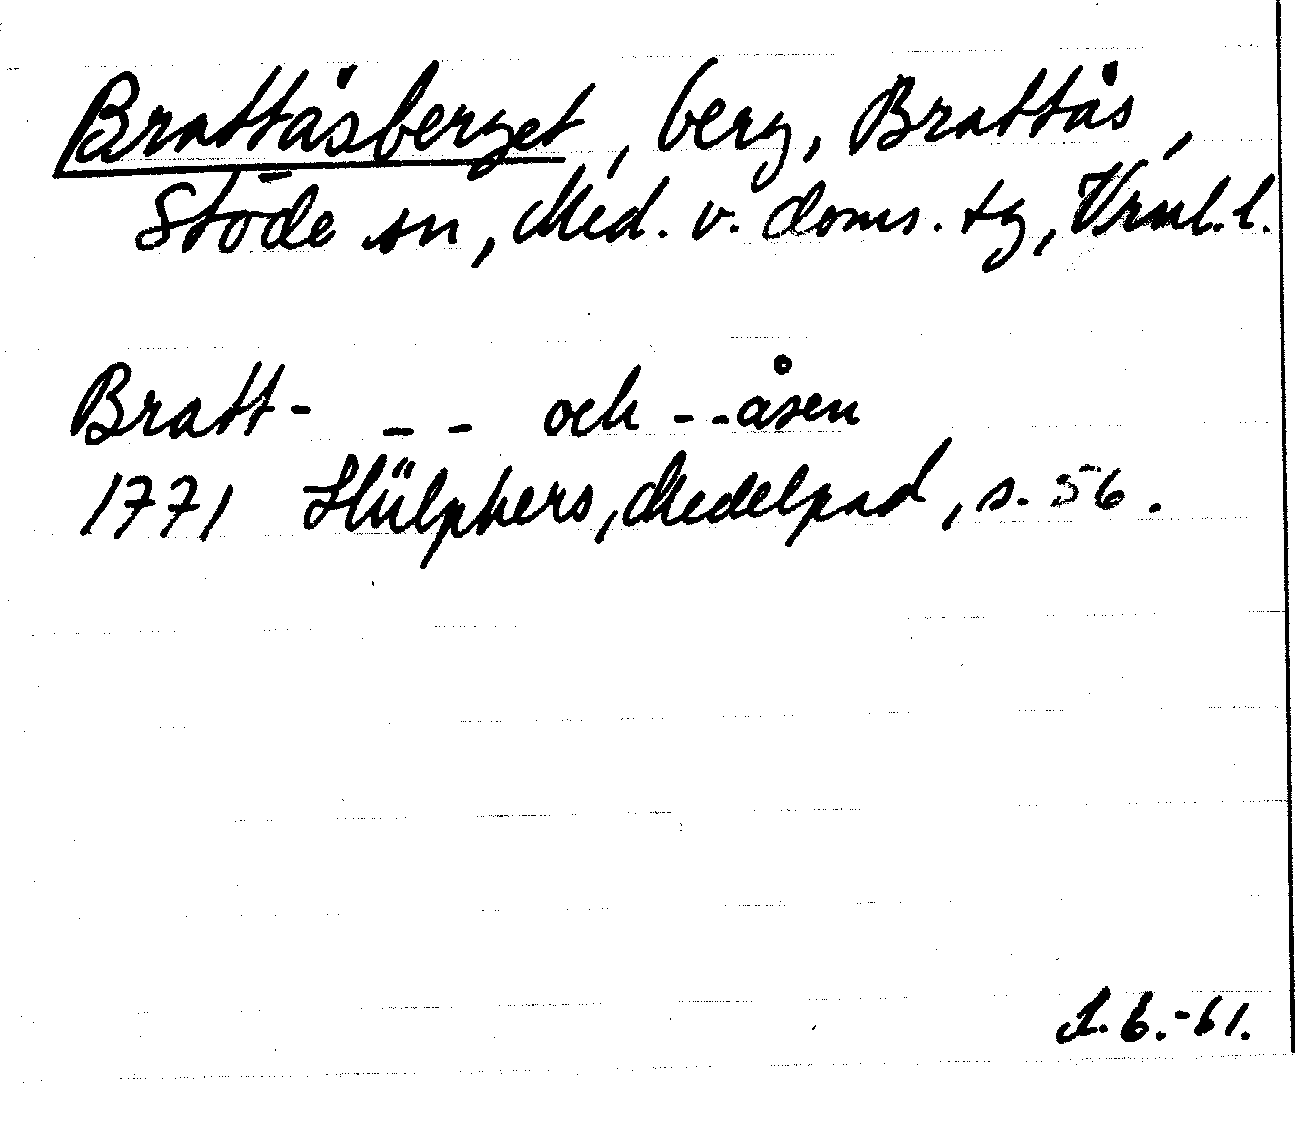 Brattåsberget, berg, Brattås,
Stöde sn, Med. v. doms. tg, Vrnl. l.
Bratt- - - och - -åsen
1771 Hülphers, Medelpad, s. 56.
6.-61.